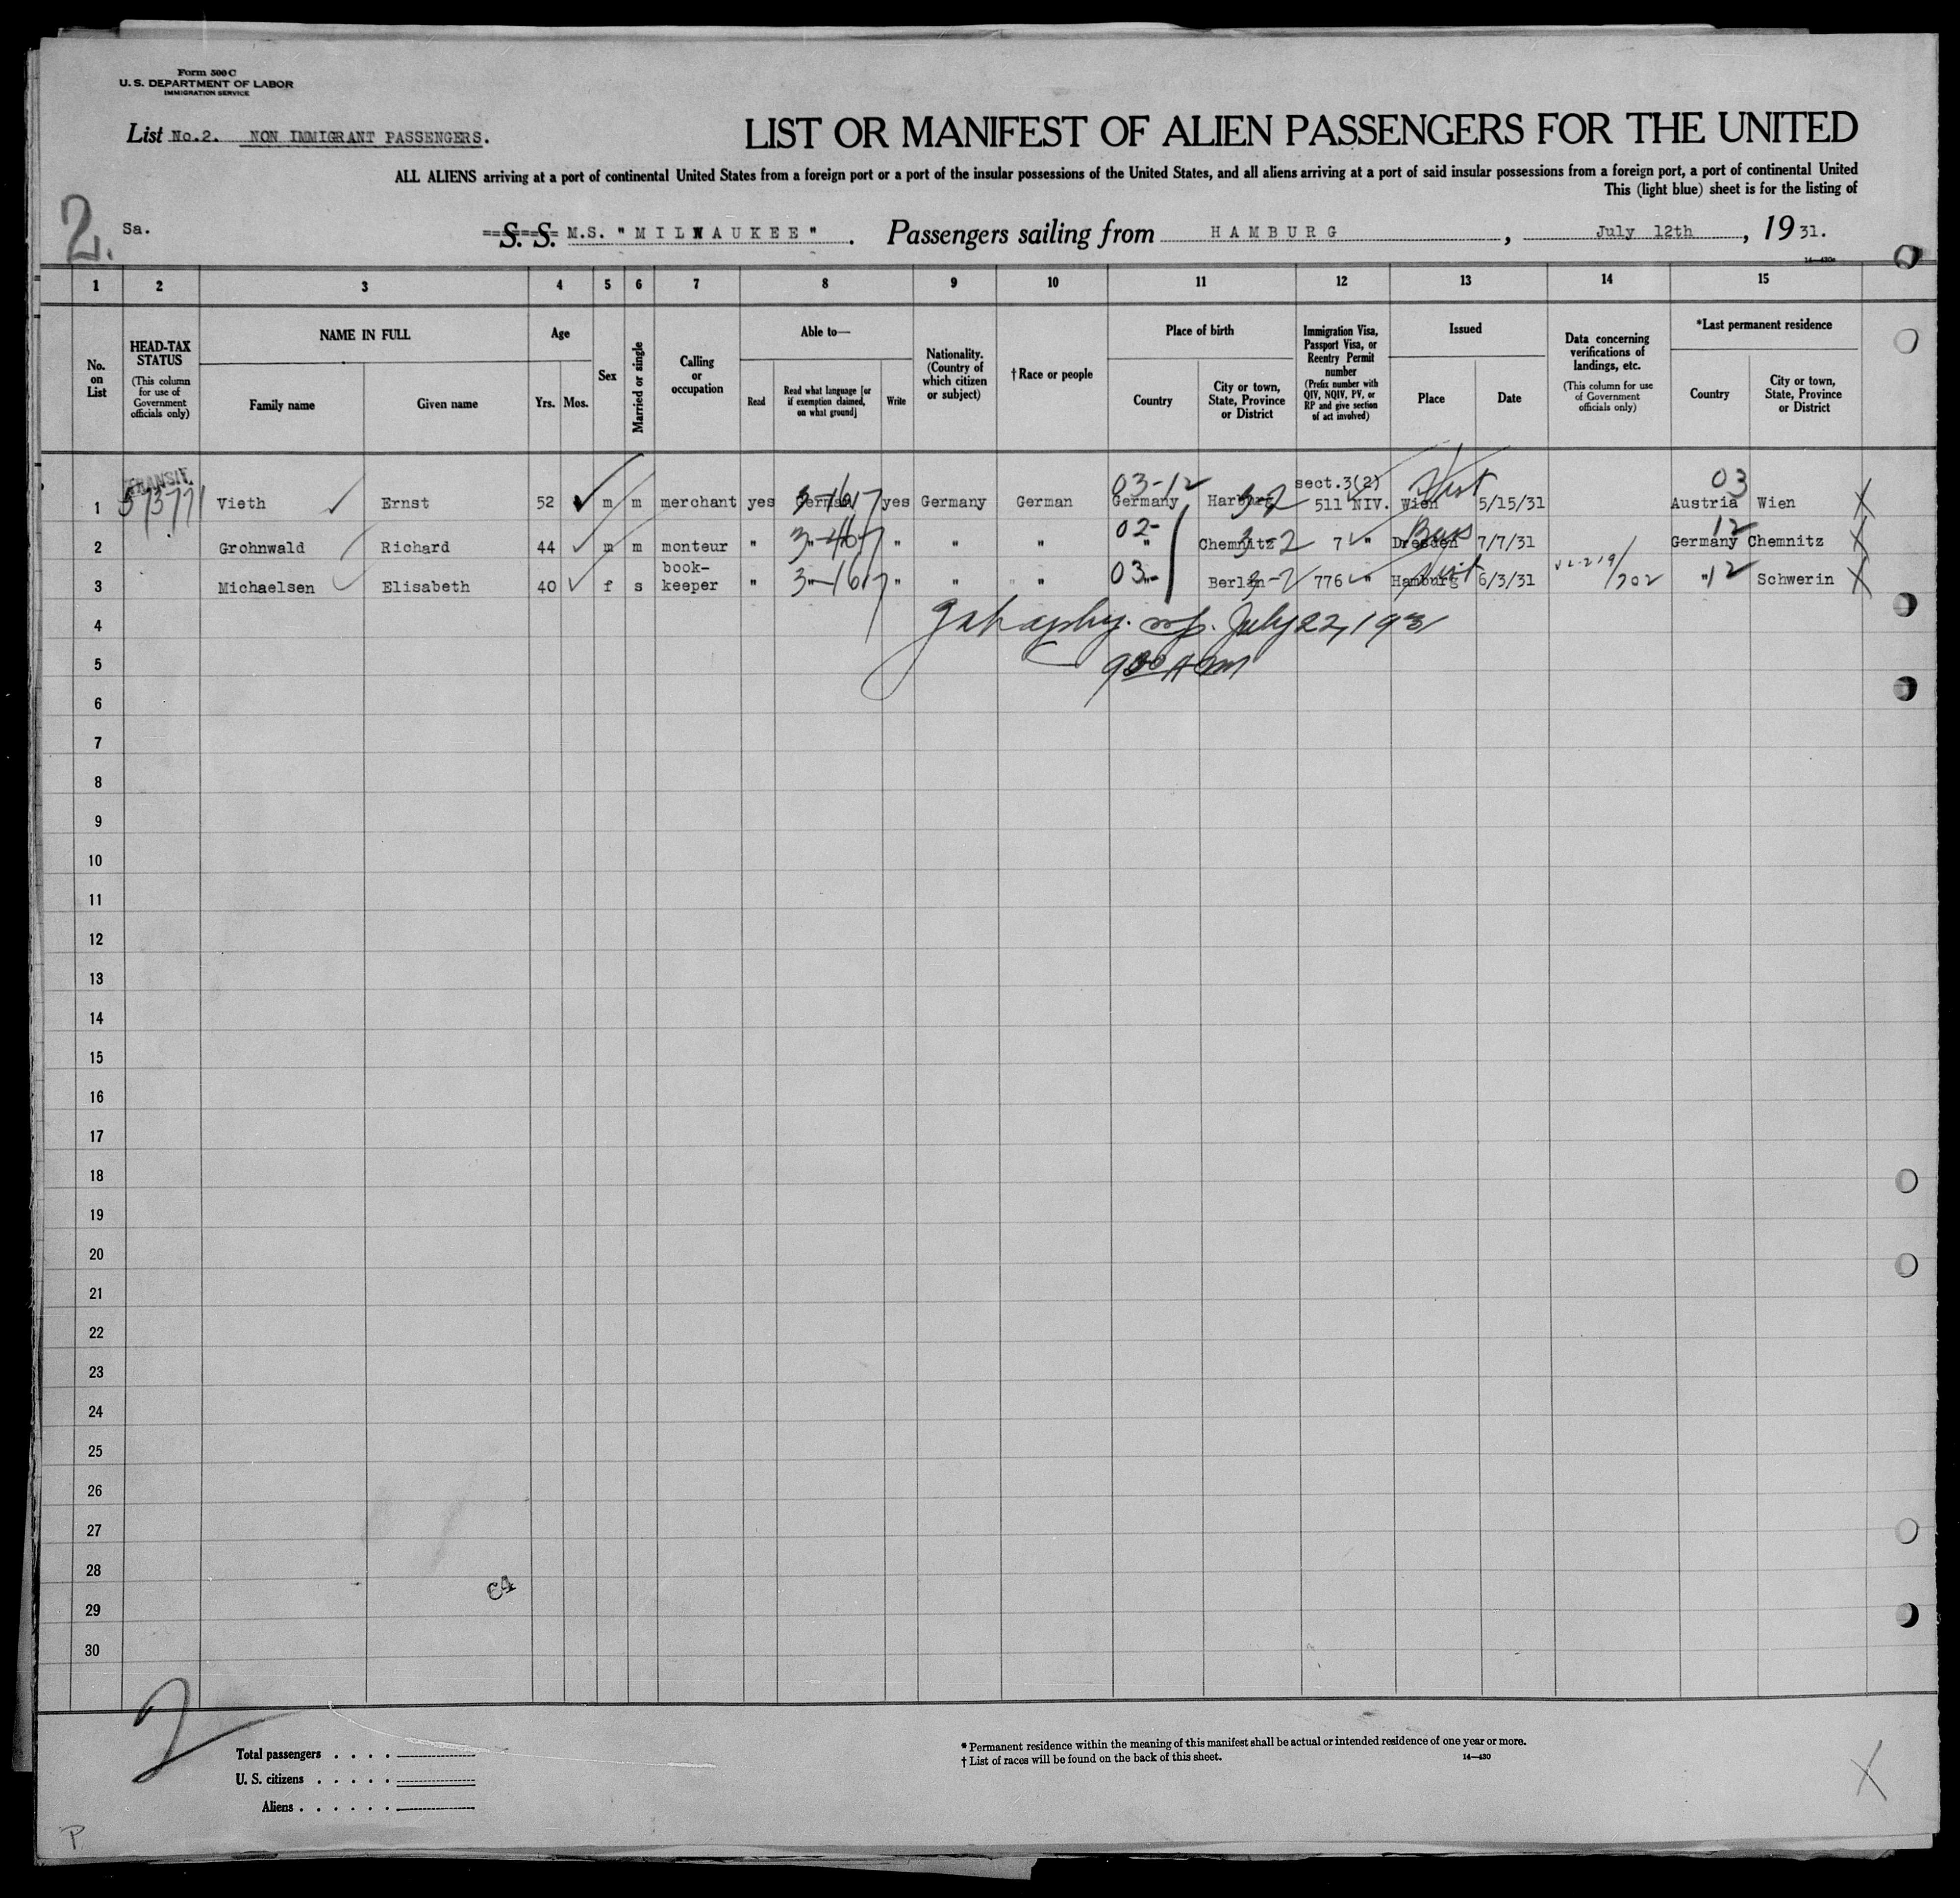 Form 500 C
U. S. DEPARTMENT OF LABOR
IMMIGRATION SERVICE
List No.2. NON IMMIGRANT PASSENGERS.
LIST OR MANIFEST OF ALIEN PASSENGERS FOR THE UNITED
ALL ALIENS arriving at a port of continental United States from a foreign port or a port of the insular possessions of the United States, and all aliens arriving at a port of said insular possessions from a foreign port, a port of continental United
This (light blue) sheet is for the listing of
2.
Sa. S. S. M.S. "MILWAUKEE". Passengers sailing from HAMBURG, July 12th, 19 31.
14—430a
1 2 3 4 5 6 7 8 9 10 11 12 13 14 15
No. on List
HEAD-TAX STATUS
(This column for use of Government officials only)
NAME IN FULL
Family name
Given name
Age
Yrs.
Mos.
Sex
Married or single
Calling or occupation
Able to—
Read
Read what language [or if exemption claimed, on what ground]
Write
Nationality. (Country of which citizen or subject)
† Race or people
Place of birth
Country
City or town, State, Province or District
Immigration Visa, Passport Visa, or Reentry Permit number
(Prefix number with QIV, NQIV, PV, or RP and give section of act involved)
Issued
Place
Date
Data concerning verifications of landings, etc.
(This column for use of Government officials only)
*Last permanent residence
Country
City or town, State, Province or District
TRANSIT 03-12 sect.3(2) 03
1 Vieth Ernst 52 m m merchant yes German yes Germany German Germany Harburg 3-2 511 NIV. Wien 5/15/31 Austria Wien
02- 12
2 Grohnwald Richard 44 m m monteur " " " " " " Chemnitz 3-2 7 " Dresden 7/7/31 Germany Chemnitz
3 Michaelsen Elisabeth 40 f s book-keeper " " 3-1617 " " " 03 " Berlin 3-2 776 " Hamburg 6/3/31 /702 " 12 Schwerin
4 July 22, 1931
5 9:00 AM
6
7
8
9
10
11
12
13
14
15
16
17
18
19
20
21
22
23
24
25
26
27
28
29
30
2
Total passengers . . . .
U. S. citizens . . . . .
Aliens . . . . . .
* Permanent residence within the meaning of this manifest shall be actual or intended residence of one year or more.
† List of races will be found on the back of this sheet.
14—430
P
X